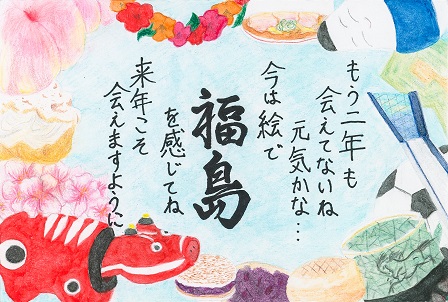 もう二年も
会えてないね
元気かな…
今は絵で
福島
を感じてね
来年こそ
会えますように